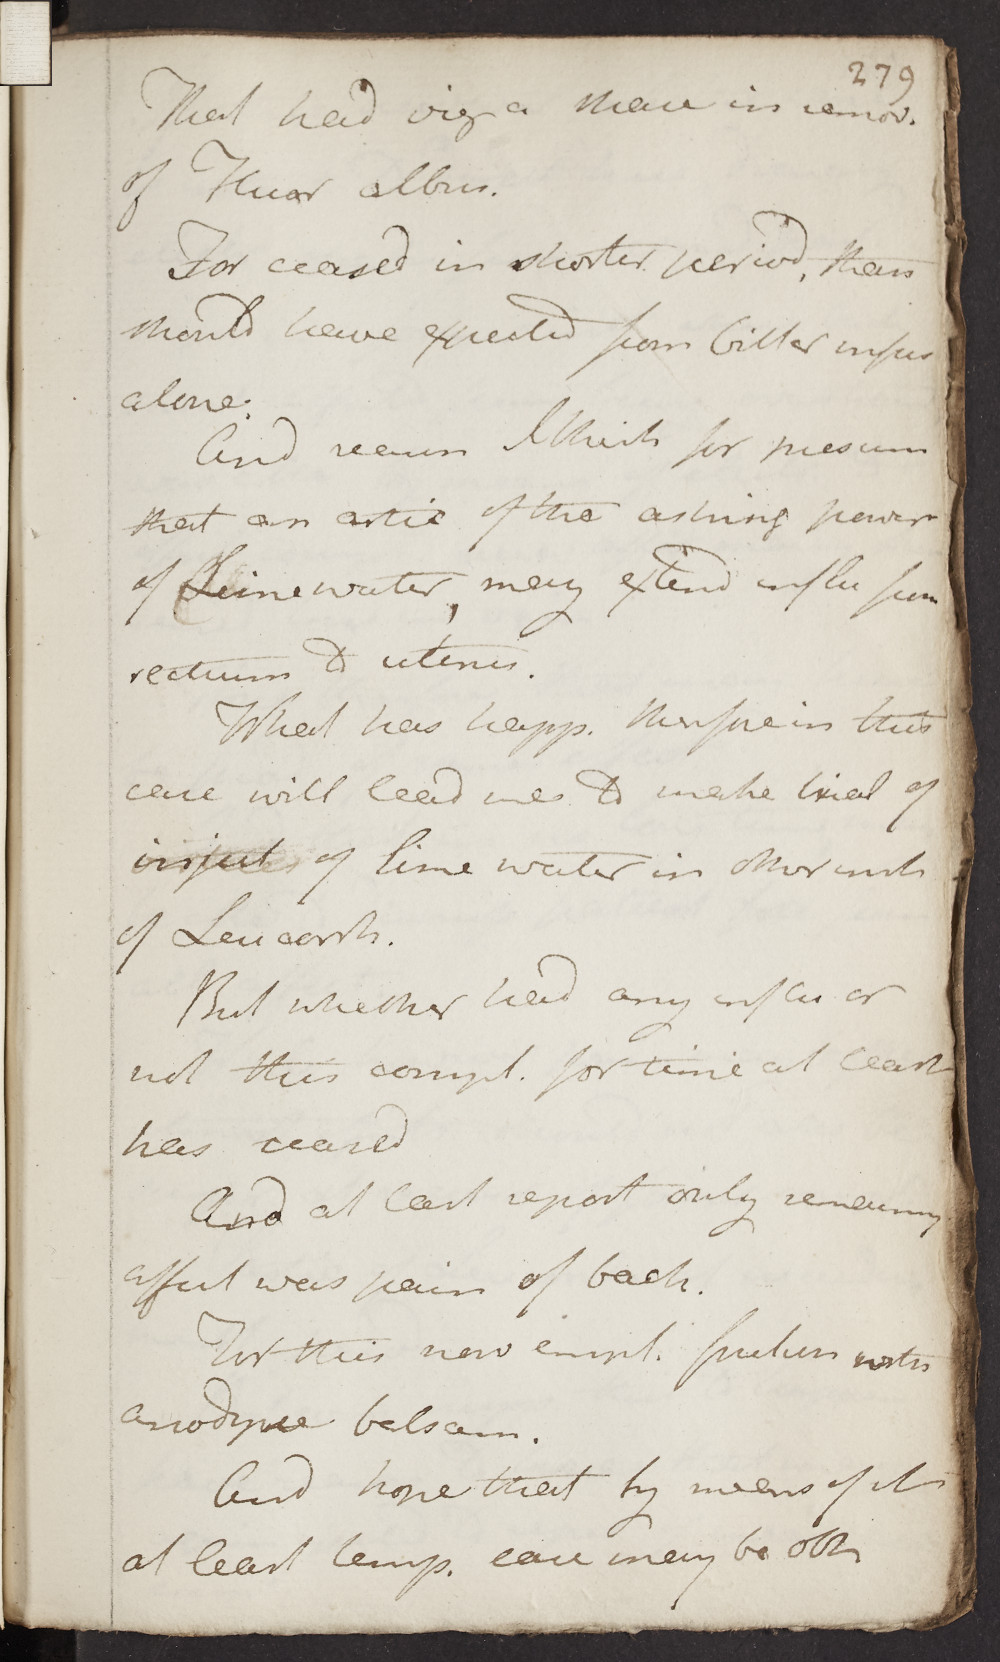 279
That had a share in remov.
of Fluor albus.
For ceased in shorter period, than
should have expected from bitter infus
alone.
And reason I think for presum
that an actio of the astring power
of Lime water, may extend influ from
rectum to uterus.
What has happ. therefore in this
case will lead me to make trial of
inject of lime water in other inst
of Leucorrh.
But whether had any influ or
not this compl. for time at least
has ceased
And at last report only remaining
affect was pain of back.
For this now empl. friction with
anodyne balsam.
And hope that by means of it
at least temp. ease may be obt